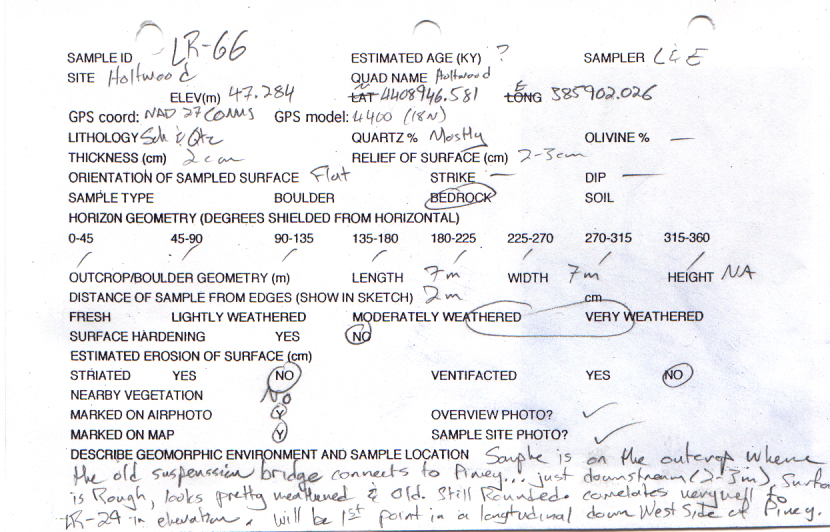 SAMPLE ID LR-66 ESTIMATED AGE (KY) ? SAMPLER L & E
SITE Holtwood QUAD NAME Holtwood
ELEV(m) 47.284 LAT N 4408946.581 LONG E 385902.026
GPS coord: NAD 27 CONUS GPS model: 4400 (18N)
LITHOLOGY Sch & Qtz QUARTZ % Mostly OLIVINE % —
THICKNESS (cm) 2cm RELIEF OF SURFACE (cm) 2-3cm
ORIENTATION OF SAMPLED SURFACE Flat STRIKE — DIP —
SAMPLE TYPE BOULDER BEDROCK SOIL
HORIZON GEOMETRY (DEGREES SHIELDED FROM HORIZONTAL)
0-45 45-90 90-135 135-180 180-225 225-270 270-315 315-360
/ / / / / / / /
OUTCROP/BOULDER GEOMETRY (m) LENGTH 7m WIDTH 7m HEIGHT NA
DISTANCE OF SAMPLE FROM EDGES (SHOW IN SKETCH) 2m cm
FRESH LIGHTLY WEATHERED MODERATELY WEATHERED VERY WEATHERED
SURFACE HARDENING YES NO
ESTIMATED EROSION OF SURFACE (cm)
STRIATED YES NO VENTIFACTED YES NO
NEARBY VEGETATION No
MARKED ON AIRPHOTO Y OVERVIEW PHOTO? ✓
MARKED ON MAP Y SAMPLE SITE PHOTO? ✓
DESCRIBE GEOMORPHIC ENVIRONMENT AND SAMPLE LOCATION Sample is on the outcrop where
the old suspenssion bridge connects to Piney... just downstream (2-3m). Surfa
is Rough, looks pretty weathered & old. Still Rounded. correlates very well to
LR-24 in elevation. will be 1st point in a longtudinal down West Side of Piney.